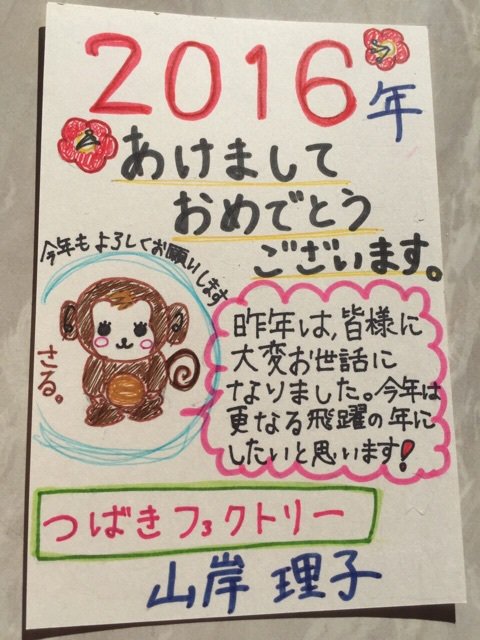 2016年
あけまして
おめでとう
ございます。
今年もよろしくお願いします
さる。
昨年は,皆様に
大変お世話に
なりました。今年は
更なる飛躍の年に
したいと思います!
つばきファクトリー
山岸 理子